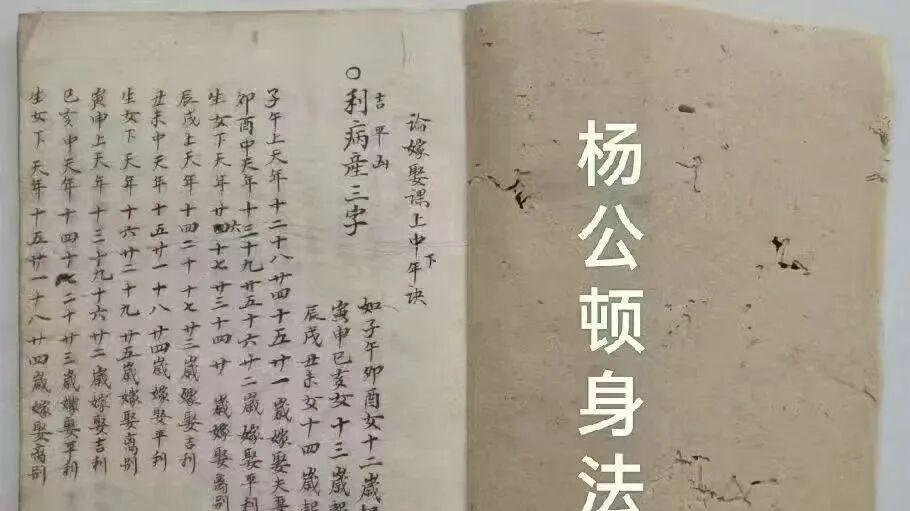 杨公顿身法
論嫁娶课上中下年诀
吉平凶
利病産三字
如子午卯酉女十二歲
寅申巳亥女十三歲
辰戌丑未女十四歲起
子午上天年十二十八廿四十五廿一歲嫁娶夫妻
卯酉中天年十三十九廿五十六廿二歲嫁娶平利
生女下天年廿十七廿三十四廿歲嫁娶离别
辰戌上天年十四二十十七廿三歲嫁娶吉利
丑未中天年十五廿一十八廿四歲嫁娶平利
生女下天年十六廿二十九廿五歲嫁娶离别
寅申上天年十三十九十六廿二歲嫁娶吉利
巳亥中天年十四十二十廿三歲嫁娶平利
生女下天年十五廿一十八廿四歲嫁娶离别